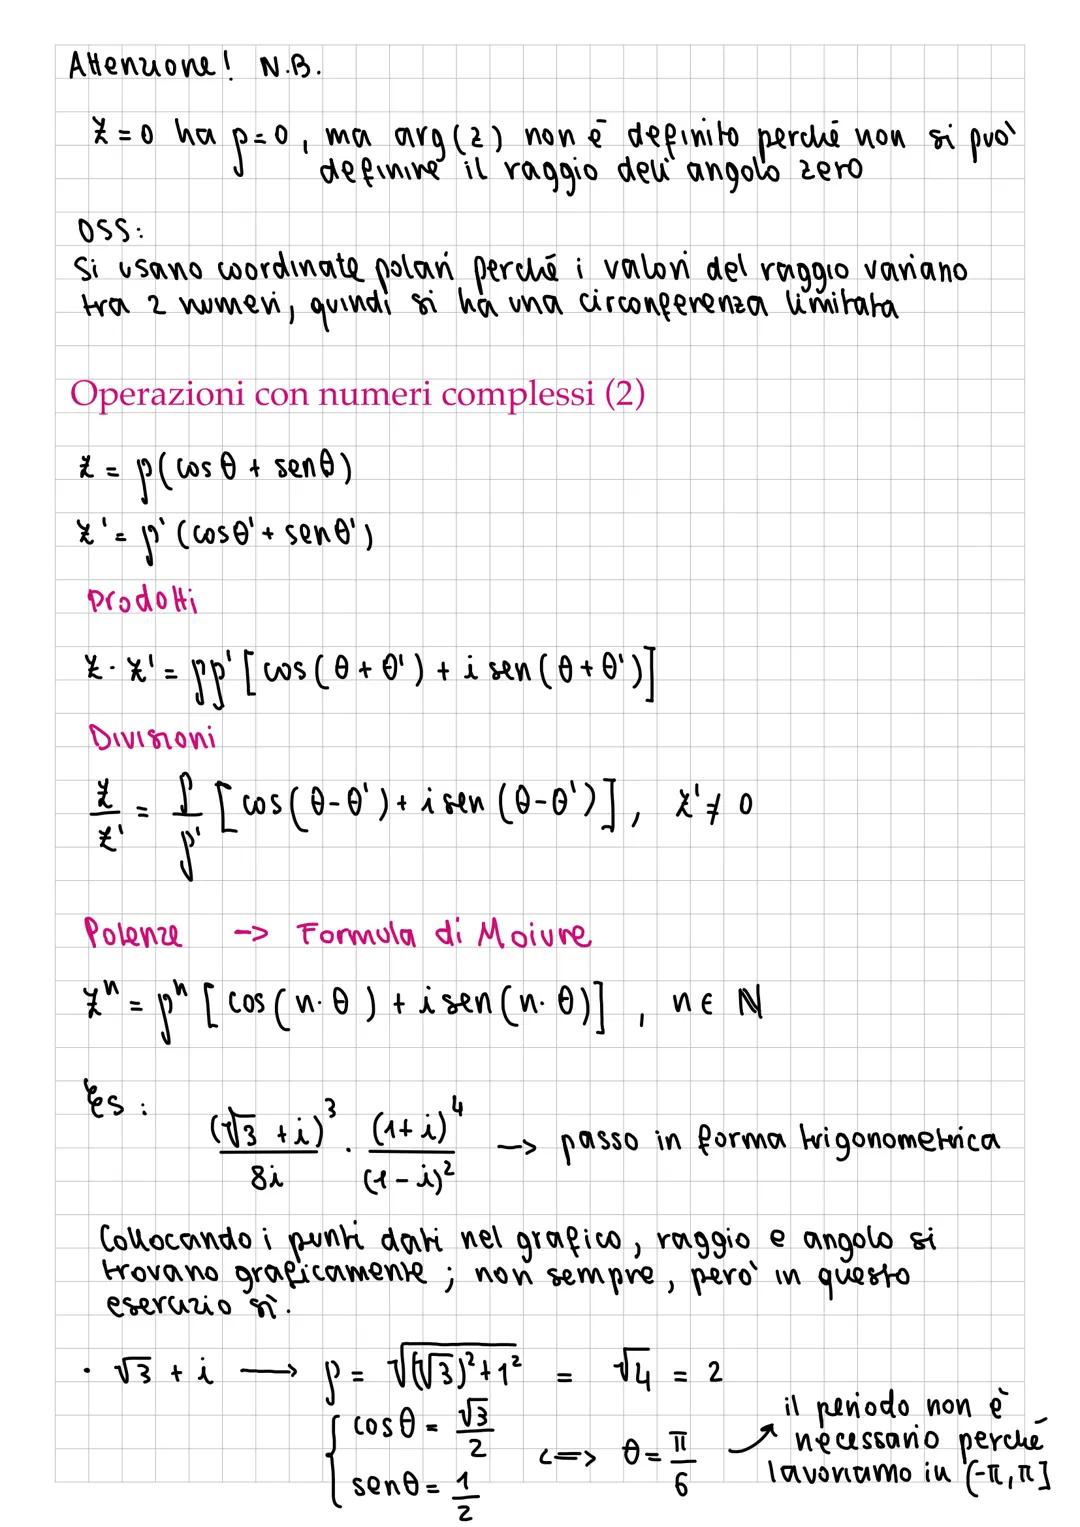 Attenzione! N.B.
z = 0 ha ρ = 0, ma arg(z) non è definito perché non si può
definire il raggio dell'angolo zero
OSS:
Si usano coordinate polari perché i valori del raggio variano
tra 2 numeri, quindi si ha una circonferenza limitata
Operazioni con numeri complessi (2)
z = ρ(cosθ + senθ)
z' = ρ'(cosθ' + senθ')
Prodotti
z · z' = ρρ' [cos(θ + θ') + i sen(θ + θ')]
Divisioni
z/z' = ρ/ρ' [cos(θ-θ') + i sen(θ-θ')], z' ≠ 0
Potenze -> Formula di Moivre
zⁿ = ρⁿ [cos(n·θ) + i sen(n·θ)], n ∈ ℕ
Es:
(√3 + i)³/8i · (1+i)⁴/(1-i)² -> passo in forma trigonometrica
Collocando i punti dati nel grafico, raggio e angolo si
trovano graficamente; non sempre, però in questo
esercizio sì.
· √3 + i → ρ = √((√3)²+1²) = √4 = 2
{ cosθ = √3/2
senθ = 1/2 <=> θ = π/6
il periodo non è
necessario perché
lavoriamo in (-π,π]